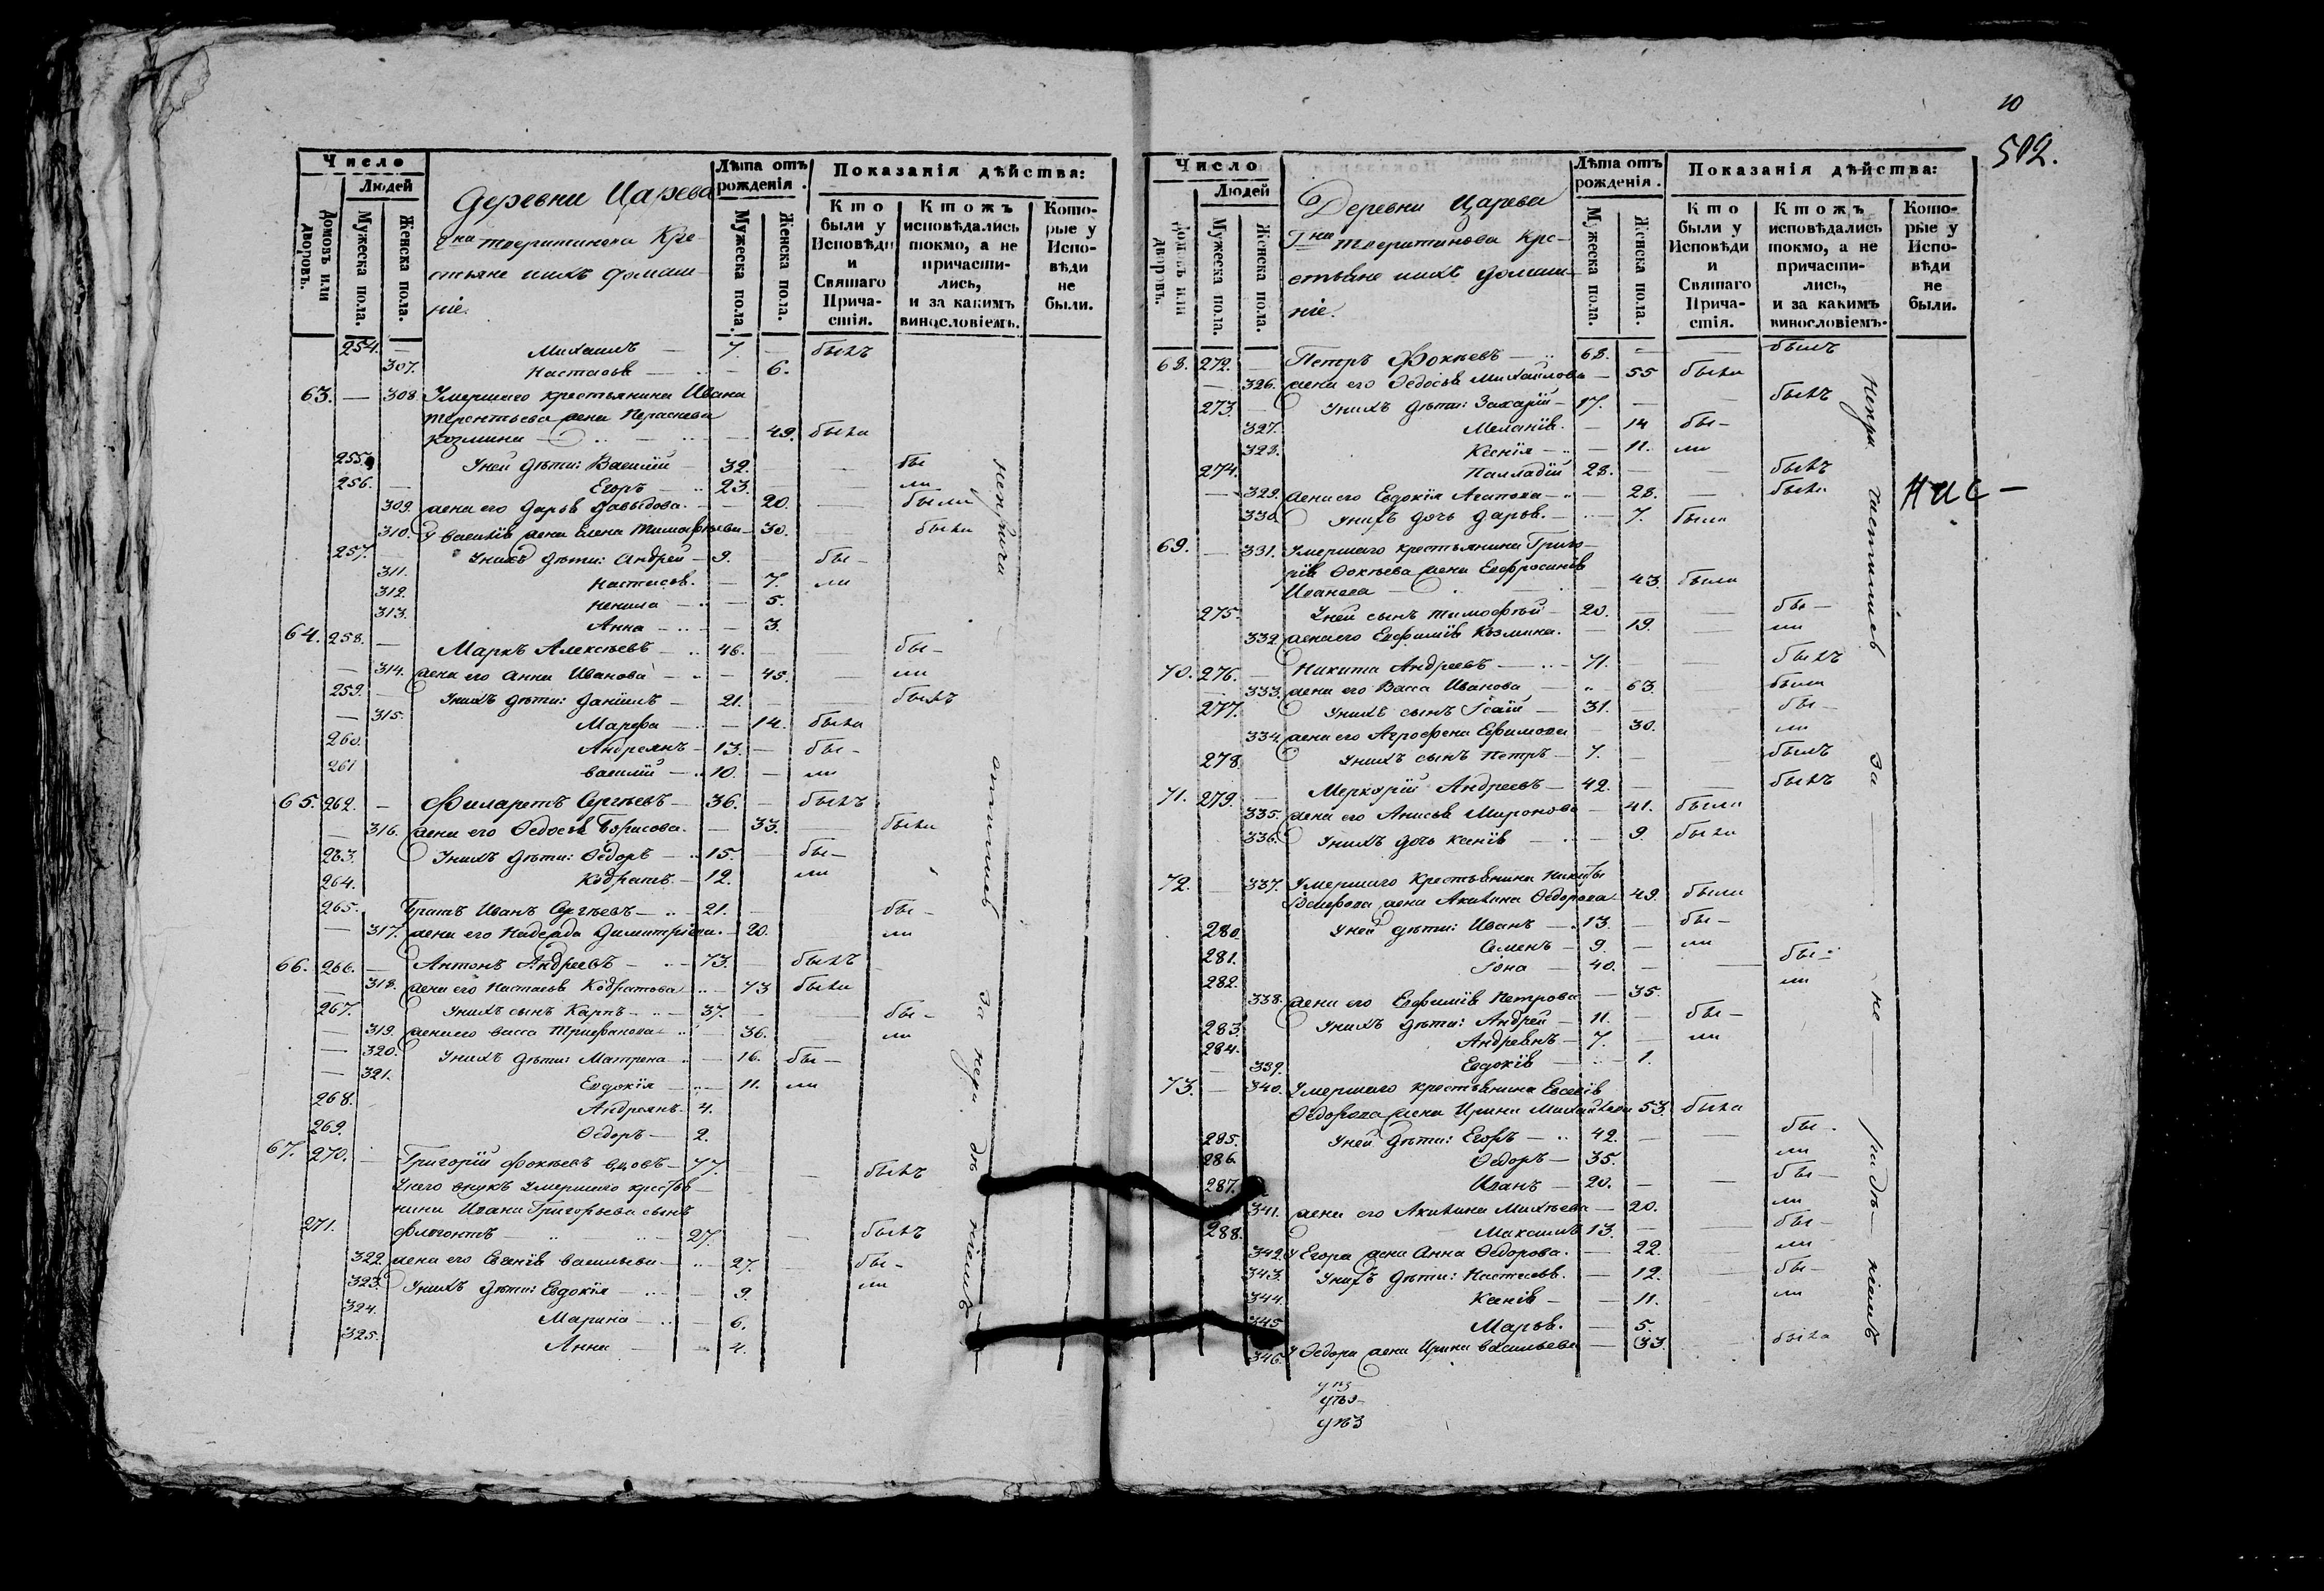 Число
Людей
Домовъ или дворовъ.
Мужеска пола.
Женска пола.
Деревни Царева
Гна Тверитинова Кре-
стьяне ихъ домаш-
ніе.
Лѣта отъ рожденія.
Мужеска пола.
Женска пола.
Показанія дѣйства:
Кто были у Исповѣди и Святаго Причастія.
Ктожъ исповѣдались токмо, а не причастились, и за какимъ винословіемъ.
Которые у Исповѣди не были.
254. — Михаилъ — 7. — былъ
307. Настасья — — 6.
63. — 308. Умершаго крестьянина Ивана
Терентьева жена
Козмина — 49. была
255. У ней дѣти: Василій — 32. — — бы
256. — Егоръ — 23. — — ли
309. жена его Дарья Давыдова. — 20. — были
310. У Василія жена Елена Тимофѣева — 30. — была
257. У нихъ дѣти: Андрей — 9. — бы-
311. Настасья. — 7. ли
312. Ненила — — 5.
313. Анна — — 3.
64. 258. — Маркъ Алексѣевъ — 46. — — бы-
— 314. жена его Анна Иванова — — 45. — ли
259. — У нихъ дѣти: Даніилъ — 21. — былъ
— 315. Марфа — — 14. была
260. Андреянъ — 13. — бы-
261 Василій — 10. — ли
65. 262. — Филаретъ Сергѣевъ — 36. — былъ
— 316. жена его Ѳедосья Борисова. — 33. — была
263. У нихъ дѣти: Ѳедоръ — 15. — бы-
264. Кодратъ. — 12. ли
265. Братъ Иванъ Сергѣевъ — 21. — бы-
— 317. жена его Надежда Димитріева. — 20. ли
66. 266. — Антонъ Андреевъ — 73. — былъ
— 318. жена его Настасья Кодратова — 73 была
267. У нихъ сынъ Карпъ — 37. — — бы-
— 319. жена его Васса Трифанова — 36. ли
— 320. У нихъ дѣти: Матрена — 16. бы-
— 321. Евдокія — 11. ли
268. Андреянъ. 4.
269. Ѳедоръ — 2.
67. 270. — Григорій Фокѣевъ вдовъ — 77. — — былъ
У него внукъ умершаго крестья-
нина Ивана Григорьева сынъ
271. Флегонтъ — 27. — былъ
322. жена его Евгенія Васильева — 27. — бы-
323. У нихъ дѣти: Евдокія — 9. ли
324. Марина — 6.
325. Анна — 4.
10
502.
Число
Людей
Домовъ или дворовъ.
Мужеска пола.
Женска пола.
Деревни Царева
Гна Тверитинова Кре-
стьяне ихъ домаш-
ніе.
Лѣта отъ рожденія.
Мужеска пола.
Женска пола.
Показанія дѣйства:
Кто были у Исповѣди и Святаго Причастія.
Ктожъ исповѣдались токмо, а не причастились, и за какимъ винословіемъ.
Которые у Исповѣди не были.
68. 272. — Петръ Фокѣевъ — 68. — — былъ
— 326. жена его Ѳедосья Михайлова — 55 была
273. — У нихъ дѣти: Захарій — 17. — — былъ
327. Меланія. — 14 бы-
328. Ксенія — 11. ли
274. Палладій 28. — — былъ
— 329. жена его Евдокія Агапова — 28. — была
330. У нихъ дочь Дарья. — 7. была
69. — 331. Умершаго крестьянина Григо-
рія Фокѣева жена Евфросинія
Иванова — 43. была
275. У ней сынъ Тимофѣй — 20. — — бы-
332 жена его Евфимія Козмина. — 19. — ли
70. 276. — Никита Андреевъ — 71. — — былъ
— 333. жена его Васса Иванова — 63. — была
277. У нихъ сынъ Исаій — 31. — — бы-
334. жена его Агрофена Ефимова — 30. ли
278. У нихъ сынъ Петръ — 7. — — былъ
71. 279. — Меркурій Андреевъ — 42. — — былъ
335. жена его Анисья Миронова — 41. была
336. У нихъ дочь Ксенія — 9. была
72. — 337. Умершаго крестьянина Никиты
жена Акилина Ѳедорова — 49. была
280. У ней дѣти: Иванъ — 13. — бы-
281. Семенъ — 9. — ли
282. Іона — 40. — — бы-
338. жена его Евфимія Петрова — 35. ли
283. У нихъ дѣти: Андрей — 11. — бы-
284. Андреянъ — 7. — ли
339. Евдокія — 1.
73. — 340. Умершаго крестьянина Евсевія
Ѳедорова жена Ирина Михайлова 53. была
285. У ней дѣти: Егоръ — 42. — — бы-
286. Ѳедоръ — 35. ли
287. Иванъ — 20. — — бы-
341. жена его Акилина Михѣева — 20. ли
288. Максимъ 13. — — бы-
342. У Егора жена Анна Ѳедорова. — 22. ли
343. У нихъ дѣти: Настасья. — 12. — бы-
344. Ксенія — — 11. ли
345 Марья. — 5.
346. У Ѳедора жена Ирина Васильева — 33. — была